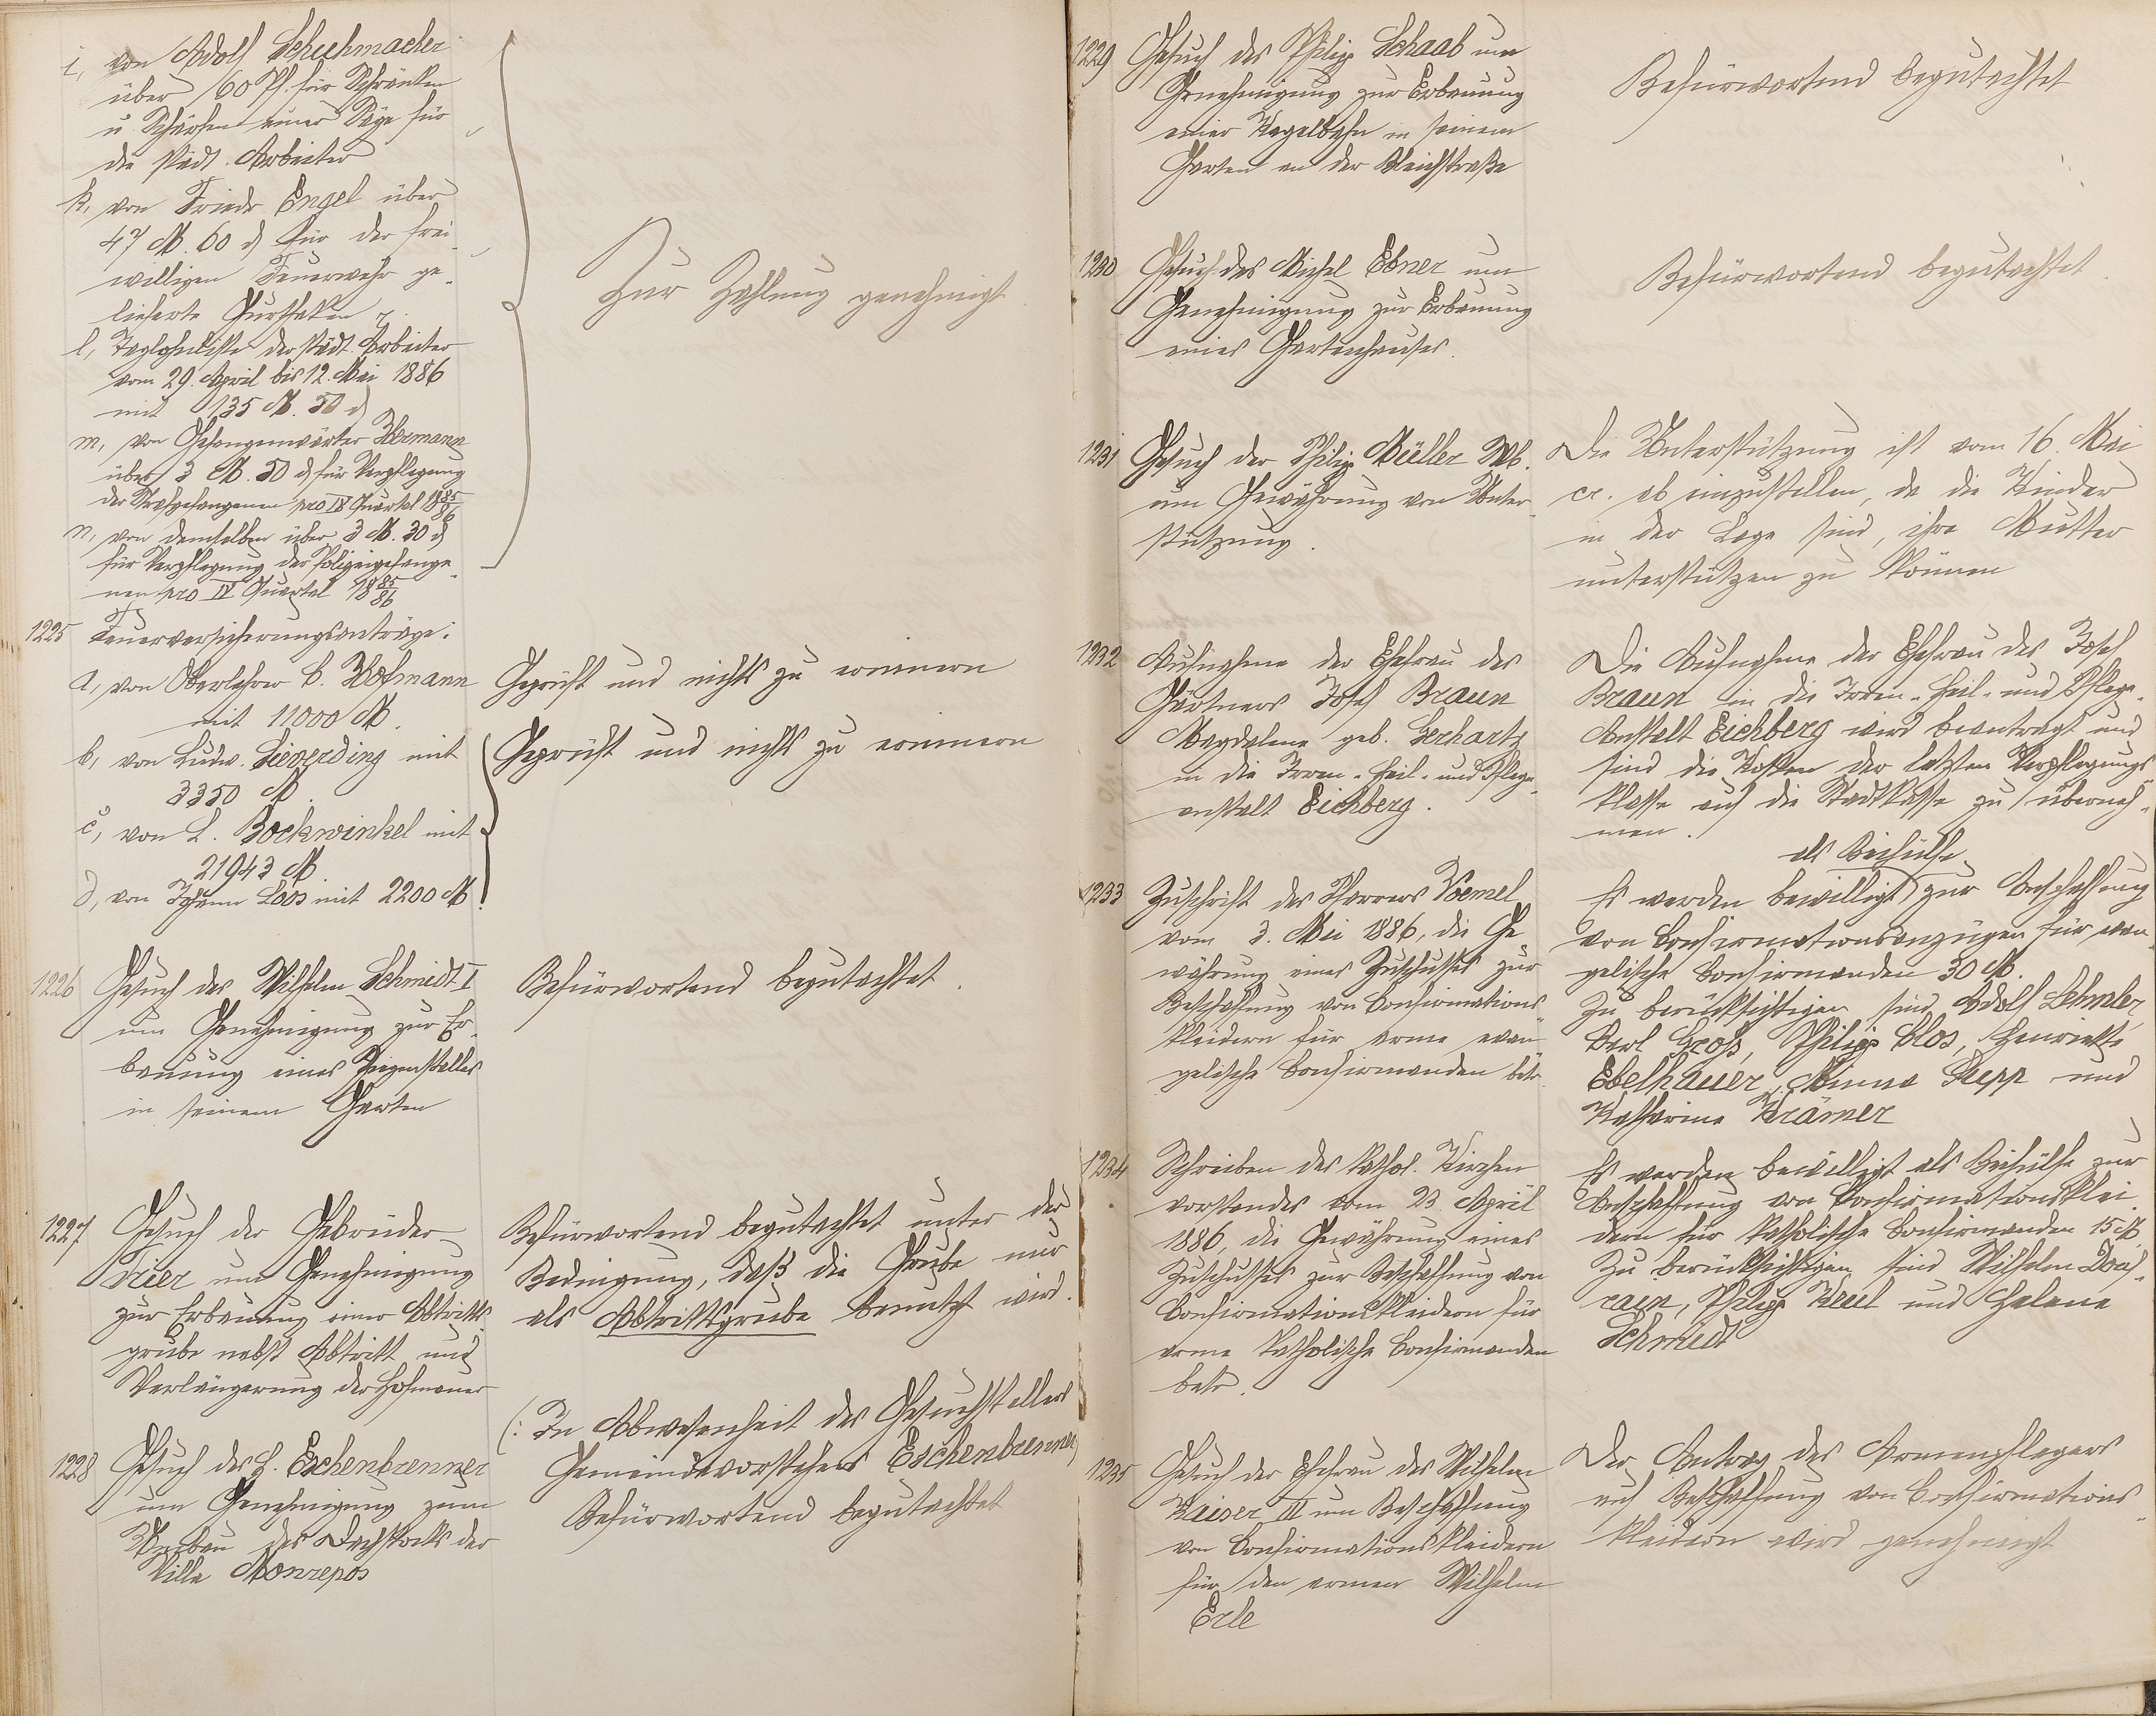 i, von Adolf Schuhmacher
über 60 Pf. für Schränken
u Schärfen einer Säge für
die städt. Arbeiter
k, von Friedr Engel über
47 M. 60 d für der frei-
willigen Feuerwehr ge-
lieferte Gurthaken
l, Taglohnliste der städt. Arbeiter
vom 29. April bis 12. Mai 1886
mit 135 M. 50 d
m, von Gefangenwärter Hermann
über 3 M. 50 d für Verpflegung
der Strafgefangenen pro IV Quartal 1885/86
n, von demselben über 3 M. 30 d
für Verpflegung der Polizeigefange-
nen pro IV Quartal 1885/86
Zur Zahlung genehmigt
1225 Feuerversicherungsanträge:
a, von Oberlehrer C. Hofmann
mit 11000 M.
Geprüft und nichts zu erinnern
b, von Ludw. Sieverding mit
3350 M.
c, von L. Bockwinkel mit
21943 M.
d, von Johann Loos mit 2200 M.
Geprüft und nichts zu erinnern
1226 Gesuch des Wilhelm Schmidt I
um Genehmigung zur Er-
bauung eines Ziegenstalles
in seinem Garten
Befürwortend begutachtet.
1227 Gesuch der Gebrüder
Trier um Genehmigung
zur Erbauung einer Abtritts-
grube nebst Abtritt und
Verlängerung der Hofmauer
Befürwortend begutachtet unter der
Bedingung, daß die Grube nur
als Abtrittsgrube benutzt wird.
1228 Gesuch des H. Eschenbrenner
um Genehmigung zum
Umbau des Dachstocks der
Villa Monrepos
(: In Abwesenheit des Gesuchstellers
Gemeindevorstehers Eschenbrenner)
Befürwortend begutachtet
1229 Gesuch des Philipp Schaab um
Genehmigung zur Erbauung
einer Kegelbahn in seinem
Garten an der Bleichstraße
Befürwortend begutachtet
1230 Gesuch des Michel Ebner um
Genehmigung zur Erbauung
eines Gartenhauses.
Befürwortend begutachtet.
1231 Gesuch der Philipp Müller Wb.
um Gewährung von Unter-
stützung.
Die Unterstützung ist vom 16. Mai
cr. ab einzustellen, da die Kinder
in der Lage sind, ihre Mutter
unterstützen zu können
1232 Aufnahme der Ehefrau des
Gärtners Josef Braun
Magdalena geb. Gerhartz
in die Irren-Heil- und Pflege-
anstalt Eichberg.
Die Aufnahme der Ehefrau des Josef
Braun in die Irren-Heil- und Pflege-
Anstalt Eichberg wird beantragt und
sind die Kosten der letzten Verpflegungs-
klasse auf die Stadtkasse zu überneh-
men.
1233 Zuschrift des Pfarrers Voemel
vom 3. Mai 1886, die Ge-
währung eines Zuschusses zur
Beschaffung von Confirmations-
kleidern für arme evan-
gelische Confirmanden betr.
als Beihülfe
Es werden bewilligt zur Anschaffung
von Confirmationsanzügen für evan-
gelische Confirmanden 30 M.
Zu berücksichtigen sind Adolf Lehmler,
Carl Groß, Philipp Clos, Henriette
Ebelhäuser, Minna Sepp und
Katharina Krämer
1234 Schreiben des kathol. Kirchen-
vorstandes vom 23. April
1886, die Gewährung eines
Zuschusses zur Beschaffung von
Confirmationskleidern für
arme katholische Confirmanden
betr.
Es werden bewilligt als Beihülfe zur
Anschaffung von Confirmationsklei-
dern für katholische Confirmanden 15 M.
Zu berücksichtigen sind Wilhelm
Philipp Keul und Helene
Schmidt
1235 Gesuch der Ehefrau des Wilhelm
Kaiser III um Beschaffung
von Confirmationskleidern
für den armen Wilhelm
Erle
Der Antrag des Armenpflegers
auf Beschaffung von Confirmations-
kleidern wird genehmigt